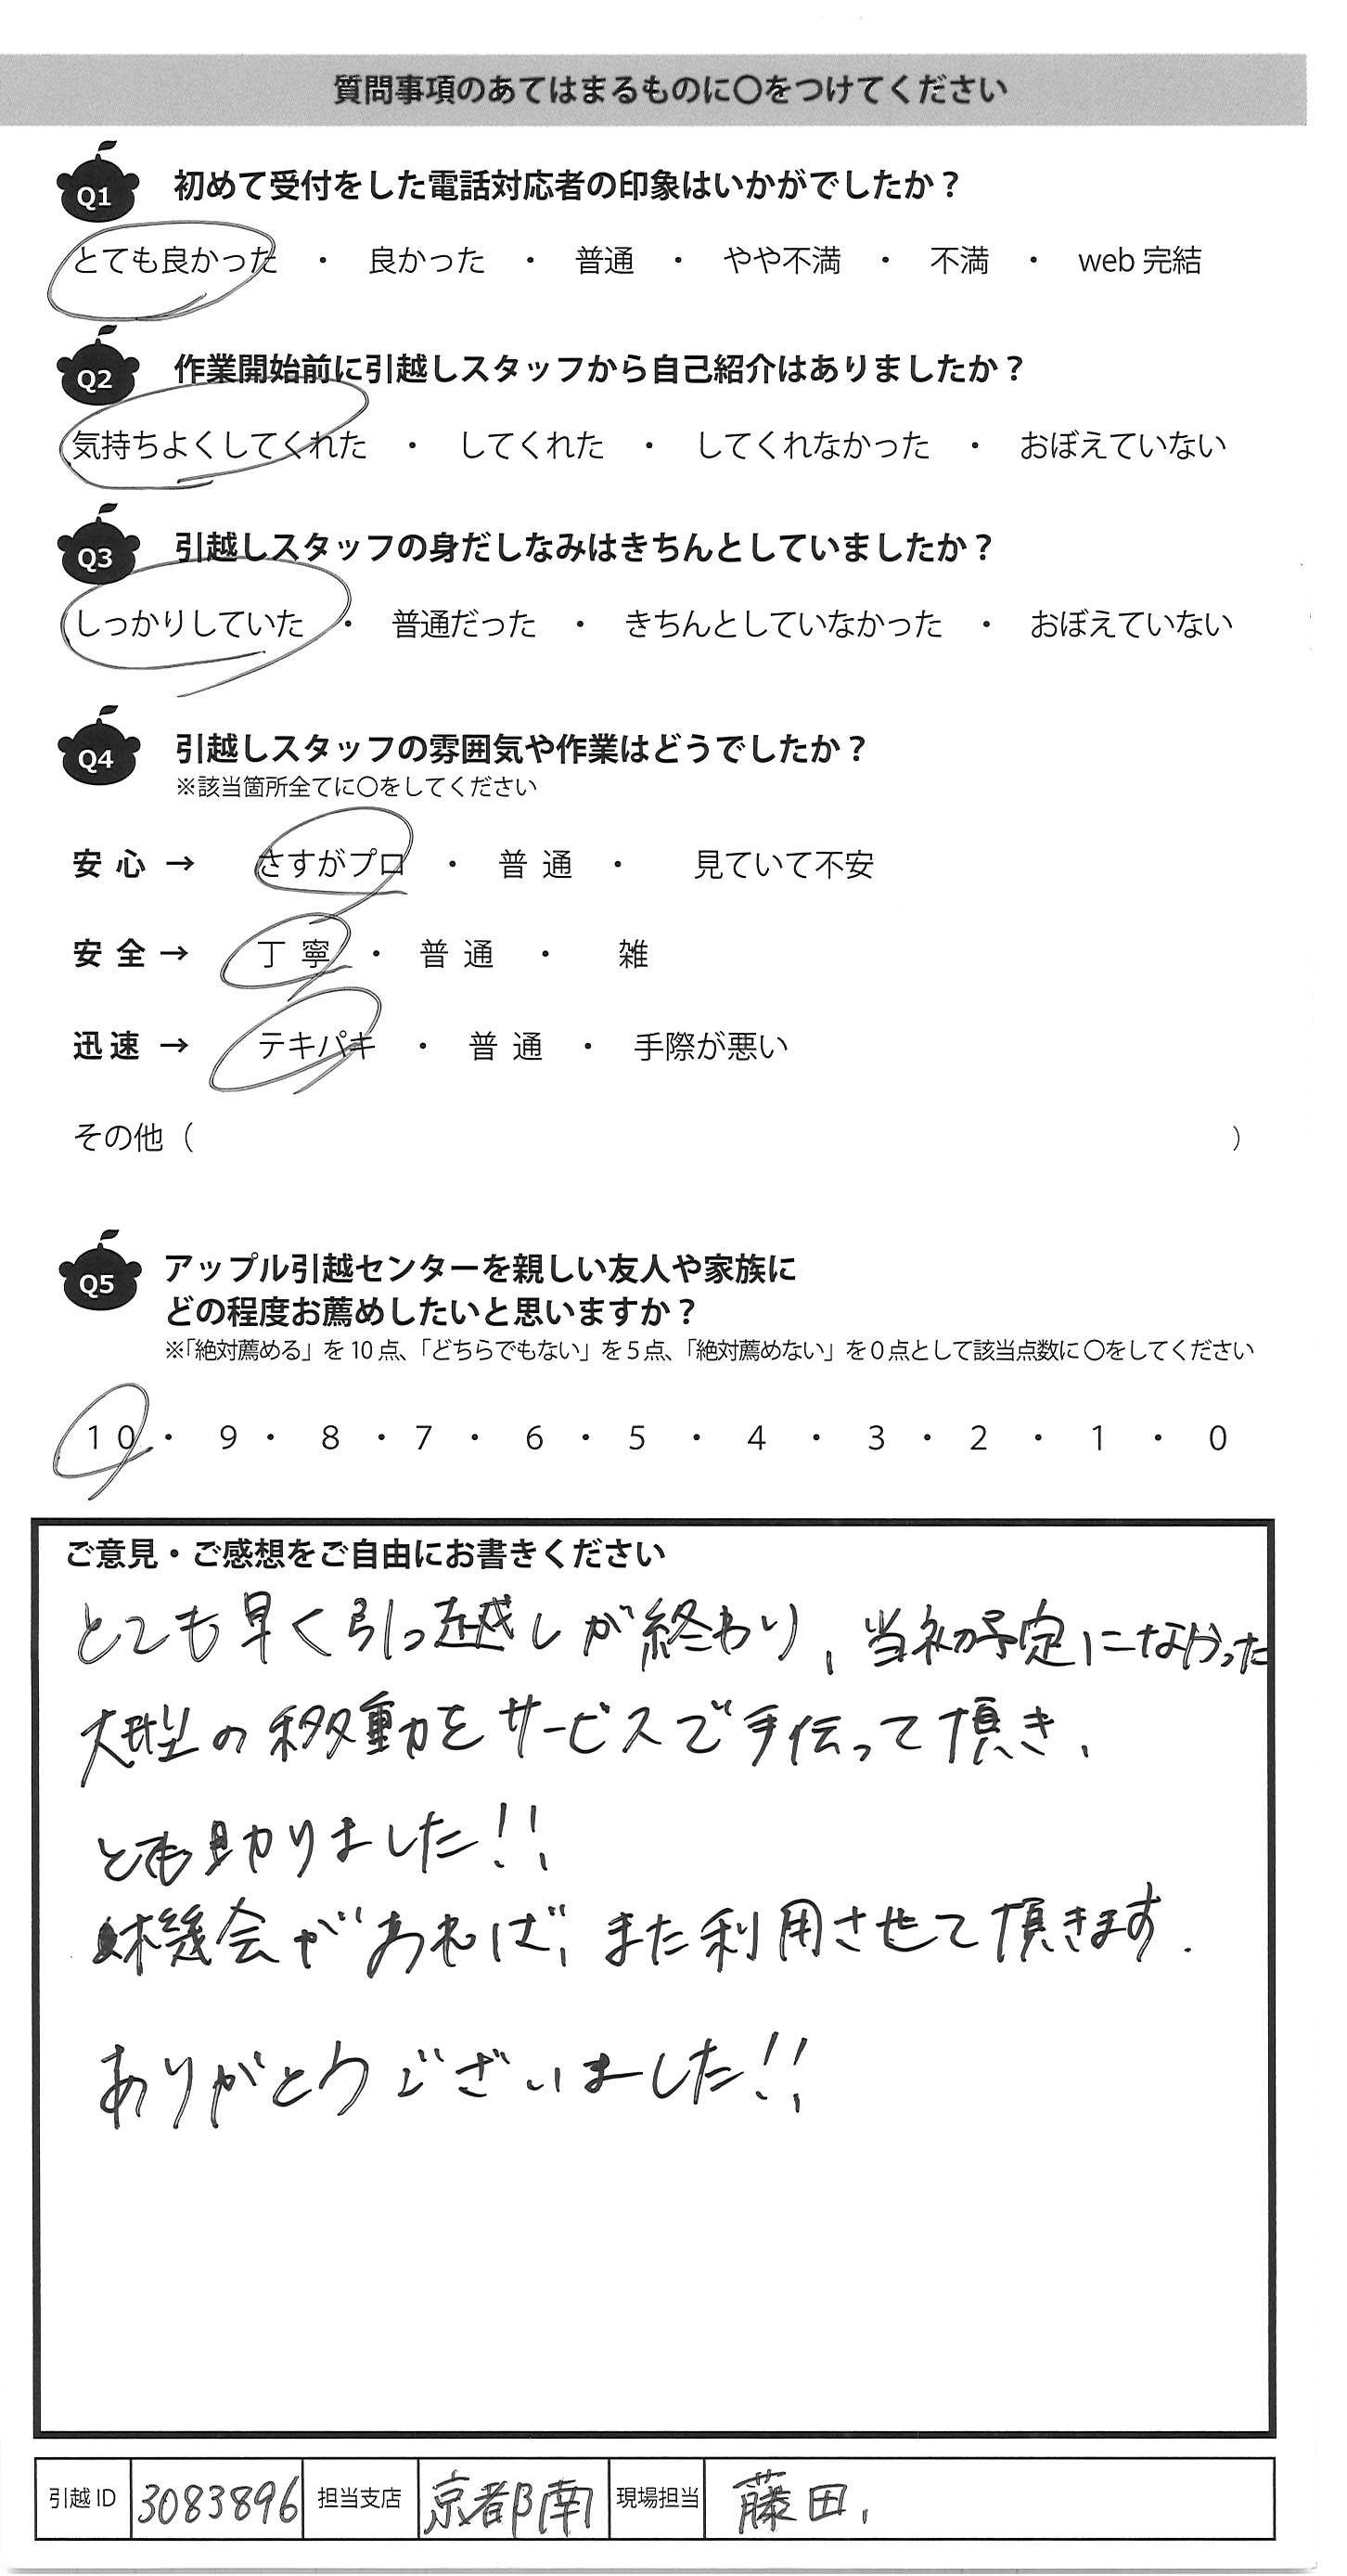 質問事項のあてはまるものに〇をつけてください
Q1 初めて受付をした電話対応者の印象はいかがでしたか？
とても良かった ・ 良かった ・ 普通 ・ やや不満 ・ 不満 ・ web 完結
Q2 作業開始前に引越しスタッフから自己紹介はありましたか？
気持ちよくしてくれた ・ してくれた ・ してくれなかった ・ おぼえていない
Q3 引越しスタッフの身だしなみはきちんとしていましたか？
しっかりしていた ・ 普通だった ・ きちんとしていなかった ・ おぼえていない
Q4 引越しスタッフの雰囲気や作業はどうでしたか？
※該当箇所全てに〇をしてください
安 心 → さすがプロ ・ 普 通 ・ 見ていて不安
安 全 → 丁 寧 ・ 普 通 ・ 雑
迅 速 → テキパキ ・ 普 通 ・ 手際が悪い
その他（ ）
Q5 アップル引越センターを親しい友人や家族に
どの程度お薦めしたいと思いますか？
※「絶対薦める」を 10 点、「どちらでもない」を 5 点、「絶対薦めない」を 0 点として該当点数に 〇をしてください
10 ・ 9 ・ 8 ・ 7 ・ 6 ・ 5 ・ 4 ・ 3 ・ 2 ・ 1 ・ 0
ご意見・ご感想をご自由にお書きください
とても早く引っ越しが終わり、当初予定になかった
大型の移動をサービスで手伝って頂き、
とても助りました!!
機会があれば、また利用させて頂きます.
ありがとうございました!!
引越 ID 3083896 担当支店 京都南 現場担当 藤田